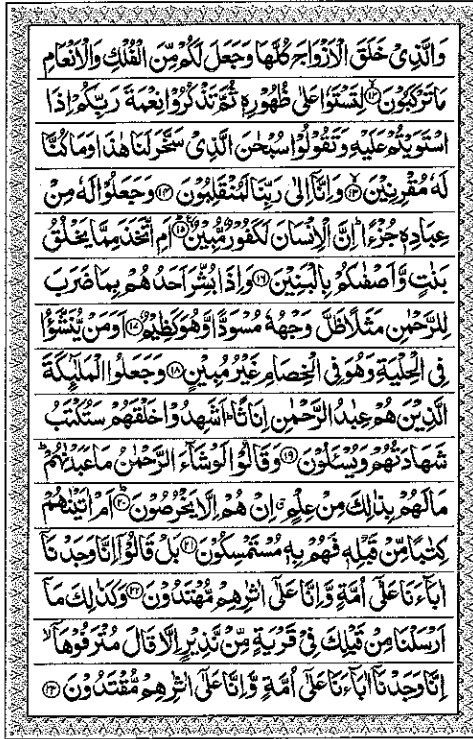 وَالَّذِىْ خَلَقَ الْاَزْوَاجَ كُلَّهَا وَجَعَلَ لَكُمْ مِّنَ الْفُلْكِ وَالْاَنْعَامِ
مَا تَرْكَبُوْنَ ۝۱۲ لِتَسْتَوٗا عَلٰى ظُهُوْرِهٖ ثُمَّ تَذْكُرُوْا نِعْمَةَ رَبِّكُمْ اِذَا
اسْتَوَيْتُمْ عَلَيْهِ وَتَقُوْلُوْا سُبْحٰنَ الَّذِىْ سَخَّرَ لَنَا هٰذَا وَمَا كُنَّا
لَهٗ مُقْرِنِيْنَ ۝۱۳ وَاِنَّاۤ اِلٰى رَبِّنَا لَمُنْقَلِبُوْنَ ۝۱۴ وَجَعَلُوْا لَهٗ مِنْ
عِبَادِهٖ جُزْءًا ؕ اِنَّ الْاِنْسَانَ لَكَفُوْرٌ مُّبِيْنٌ ۝۱۵ اَمِ اتَّخَذَ مِمَّا يَخْلُقُ
بَنٰتٍ وَّاَصْفٰكُمْ بِالْبَنِيْنَ ۝۱۶ وَاِذَا بُشِّرَ اَحَدُهُمْ بِمَا ضَرَبَ
لِلرَّحْمٰنِ مَثَلًا ظَلَّ وَجْهُهٗ مُسْوَدًّا وَّهُوَ كَظِيْمٌ ۝۱۷ اَوَمَنْ يُّنَشَّؤُا
فِى الْحِلْيَةِ وَهُوَ فِى الْخِصَامِ غَيْرُ مُبِيْنٍ ۝۱۸ وَجَعَلُوا الْمَلٰٓئِكَةَ
الَّذِيْنَ هُمْ عِبٰدُ الرَّحْمٰنِ اِنَاثًا ؕ اَشَهِدُوْا خَلْقَهُمْ ؕ سَتُكْتَبُ
شَهَادَتُهُمْ وَيُسْـَٔلُوْنَ ۝۱۹ وَقَالُوْا لَوْ شَآءَ الرَّحْمٰنُ مَا عَبَدْنٰهُمْ ؕ
مَا لَهُمْ بِذٰلِكَ مِنْ عِلْمٍ ۗ اِنْ هُمْ اِلَّا يَخْرُصُوْنَ ۝۲۰ اَمْ اٰتَيْنٰهُمْ
كِتٰبًا مِّنْ قَبْلِهٖ فَهُمْ بِهٖ مُسْتَمْسِكُوْنَ ۝۲۱ بَلْ قَالُوْۤا اِنَّا وَجَدْنَاۤ
اٰبَآءَنَا عَلٰۤى اُمَّةٍ وَّاِنَّا عَلٰۤى اٰثٰرِهِمْ مُّهْتَدُوْنَ ۝۲۲ وَكَذٰلِكَ مَاۤ
اَرْسَلْنَا مِنْ قَبْلِكَ فِىْ قَرْيَةٍ مِّنْ نَّذِيْرٍ اِلَّا قَالَ مُتْرَفُوْهَاۤ ۙ
اِنَّا وَجَدْنَاۤ اٰبَآءَنَا عَلٰۤى اُمَّةٍ وَّاِنَّا عَلٰۤى اٰثٰرِهِمْ مُّقْتَدُوْنَ ۝۲۳